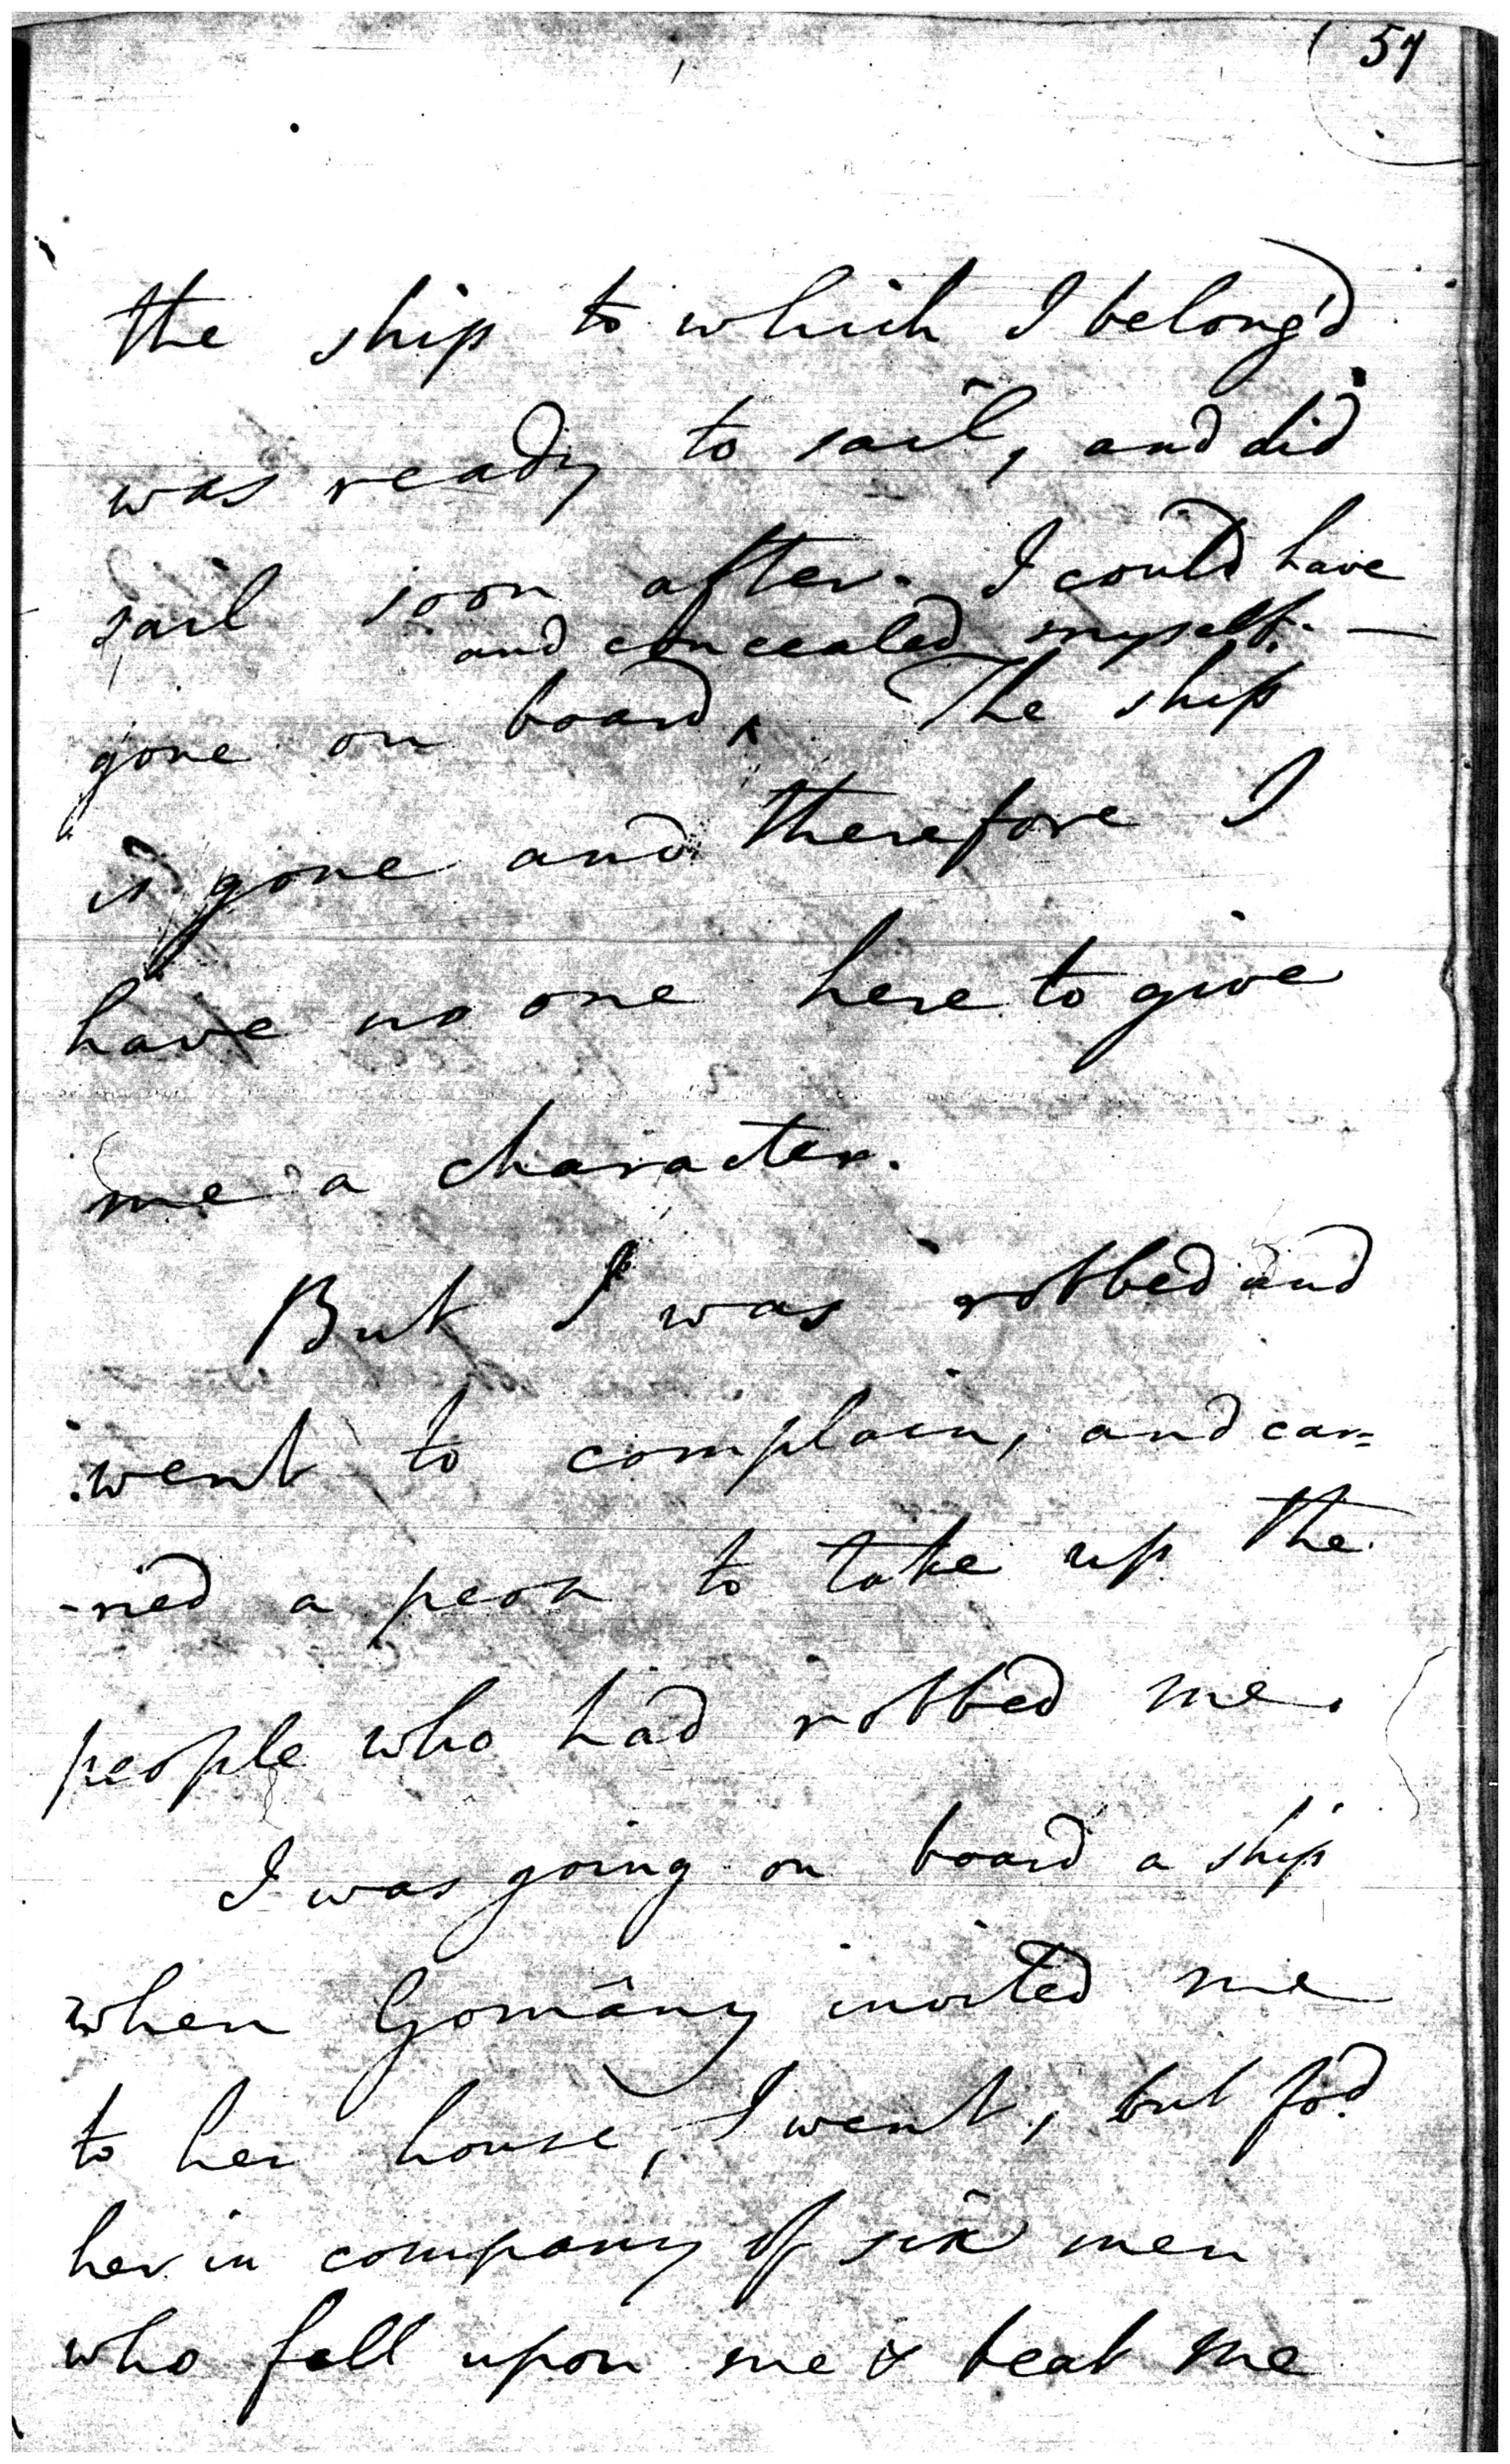 57
the ship to which I belong'd
was ready to sail, and did
sail soon after. I could have
and concealed myself. —
gone on board ‸ The ship
is gone and therefore I
have no one here to give
me a character.
But I was robbed and
went to complain, and car=
-ried a peon to take up the
people who had robbed me.
I was going on board a ship
when Gomâny invited me
to her house, I went, but fo.d
her in company of six men
who fell upon me & beat me